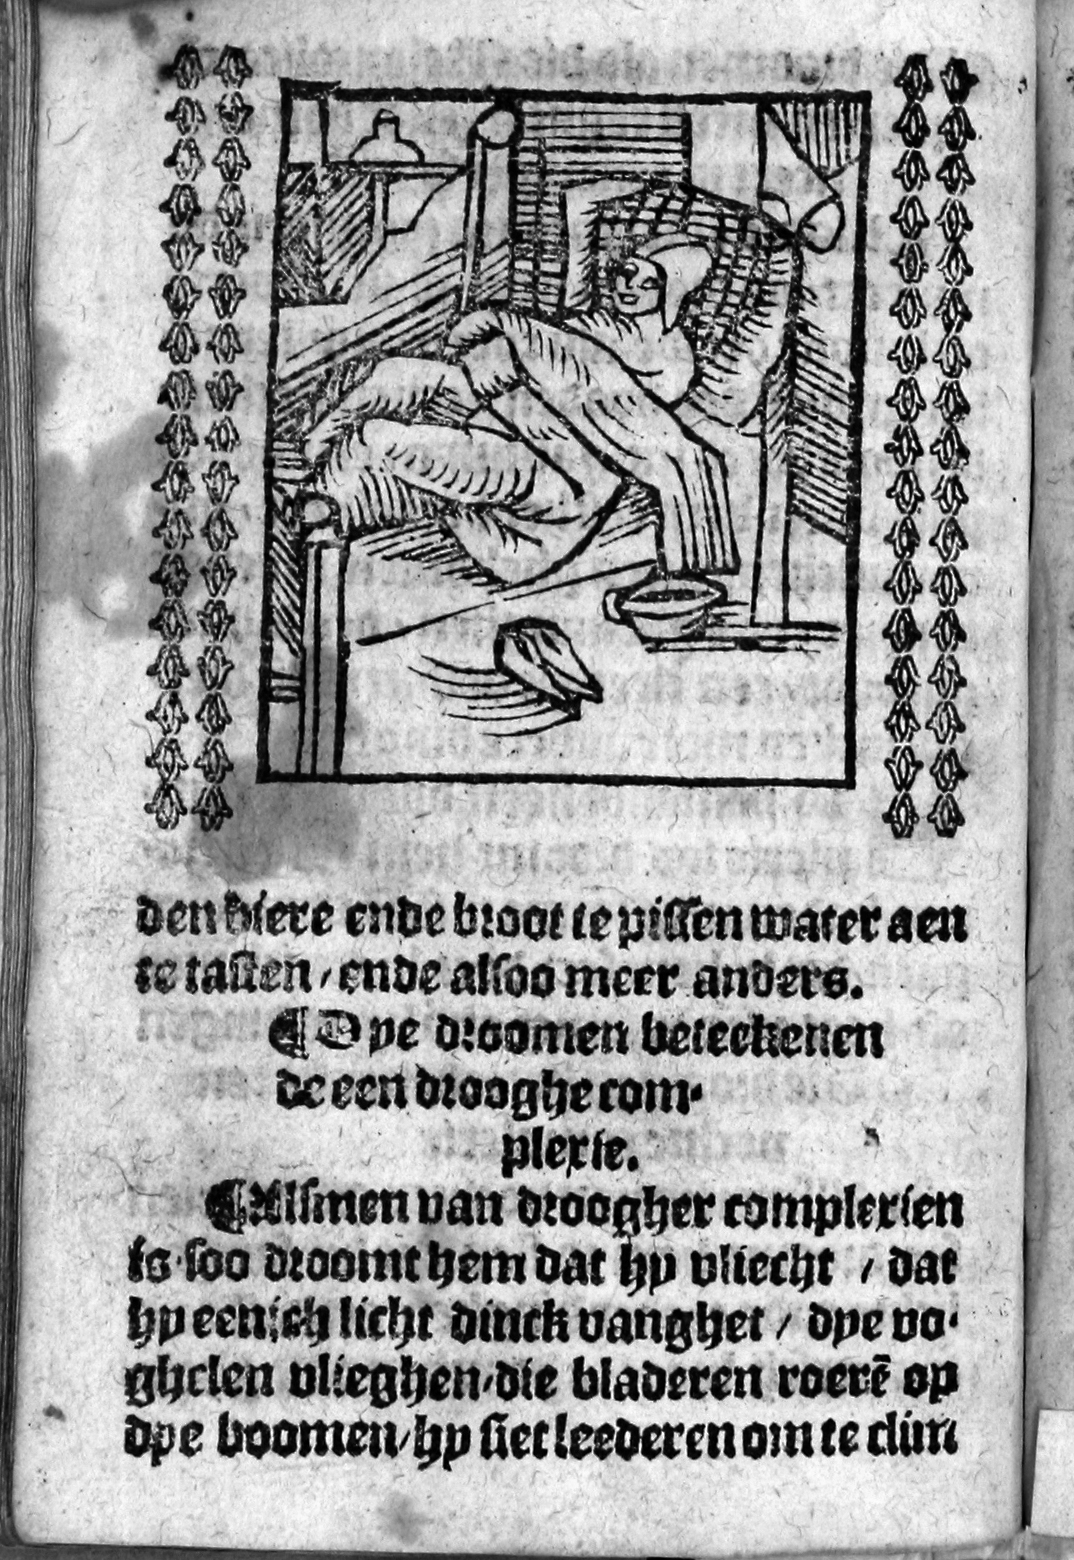 den biere ende broot te pissen water aen
te tasten / ende alsoo meer anders.
¶ Dye droomen beteekenen
de een drooghe com-
plexie.
¶ Alsmen van droogher complexien
is soo droomt hem dat hy vliecht / dat
hy eenich licht dinck vanghet / dye vo-
ghelen vlieghen / die bladeren roerē op
dye boomen / hy siet leederen om te clim